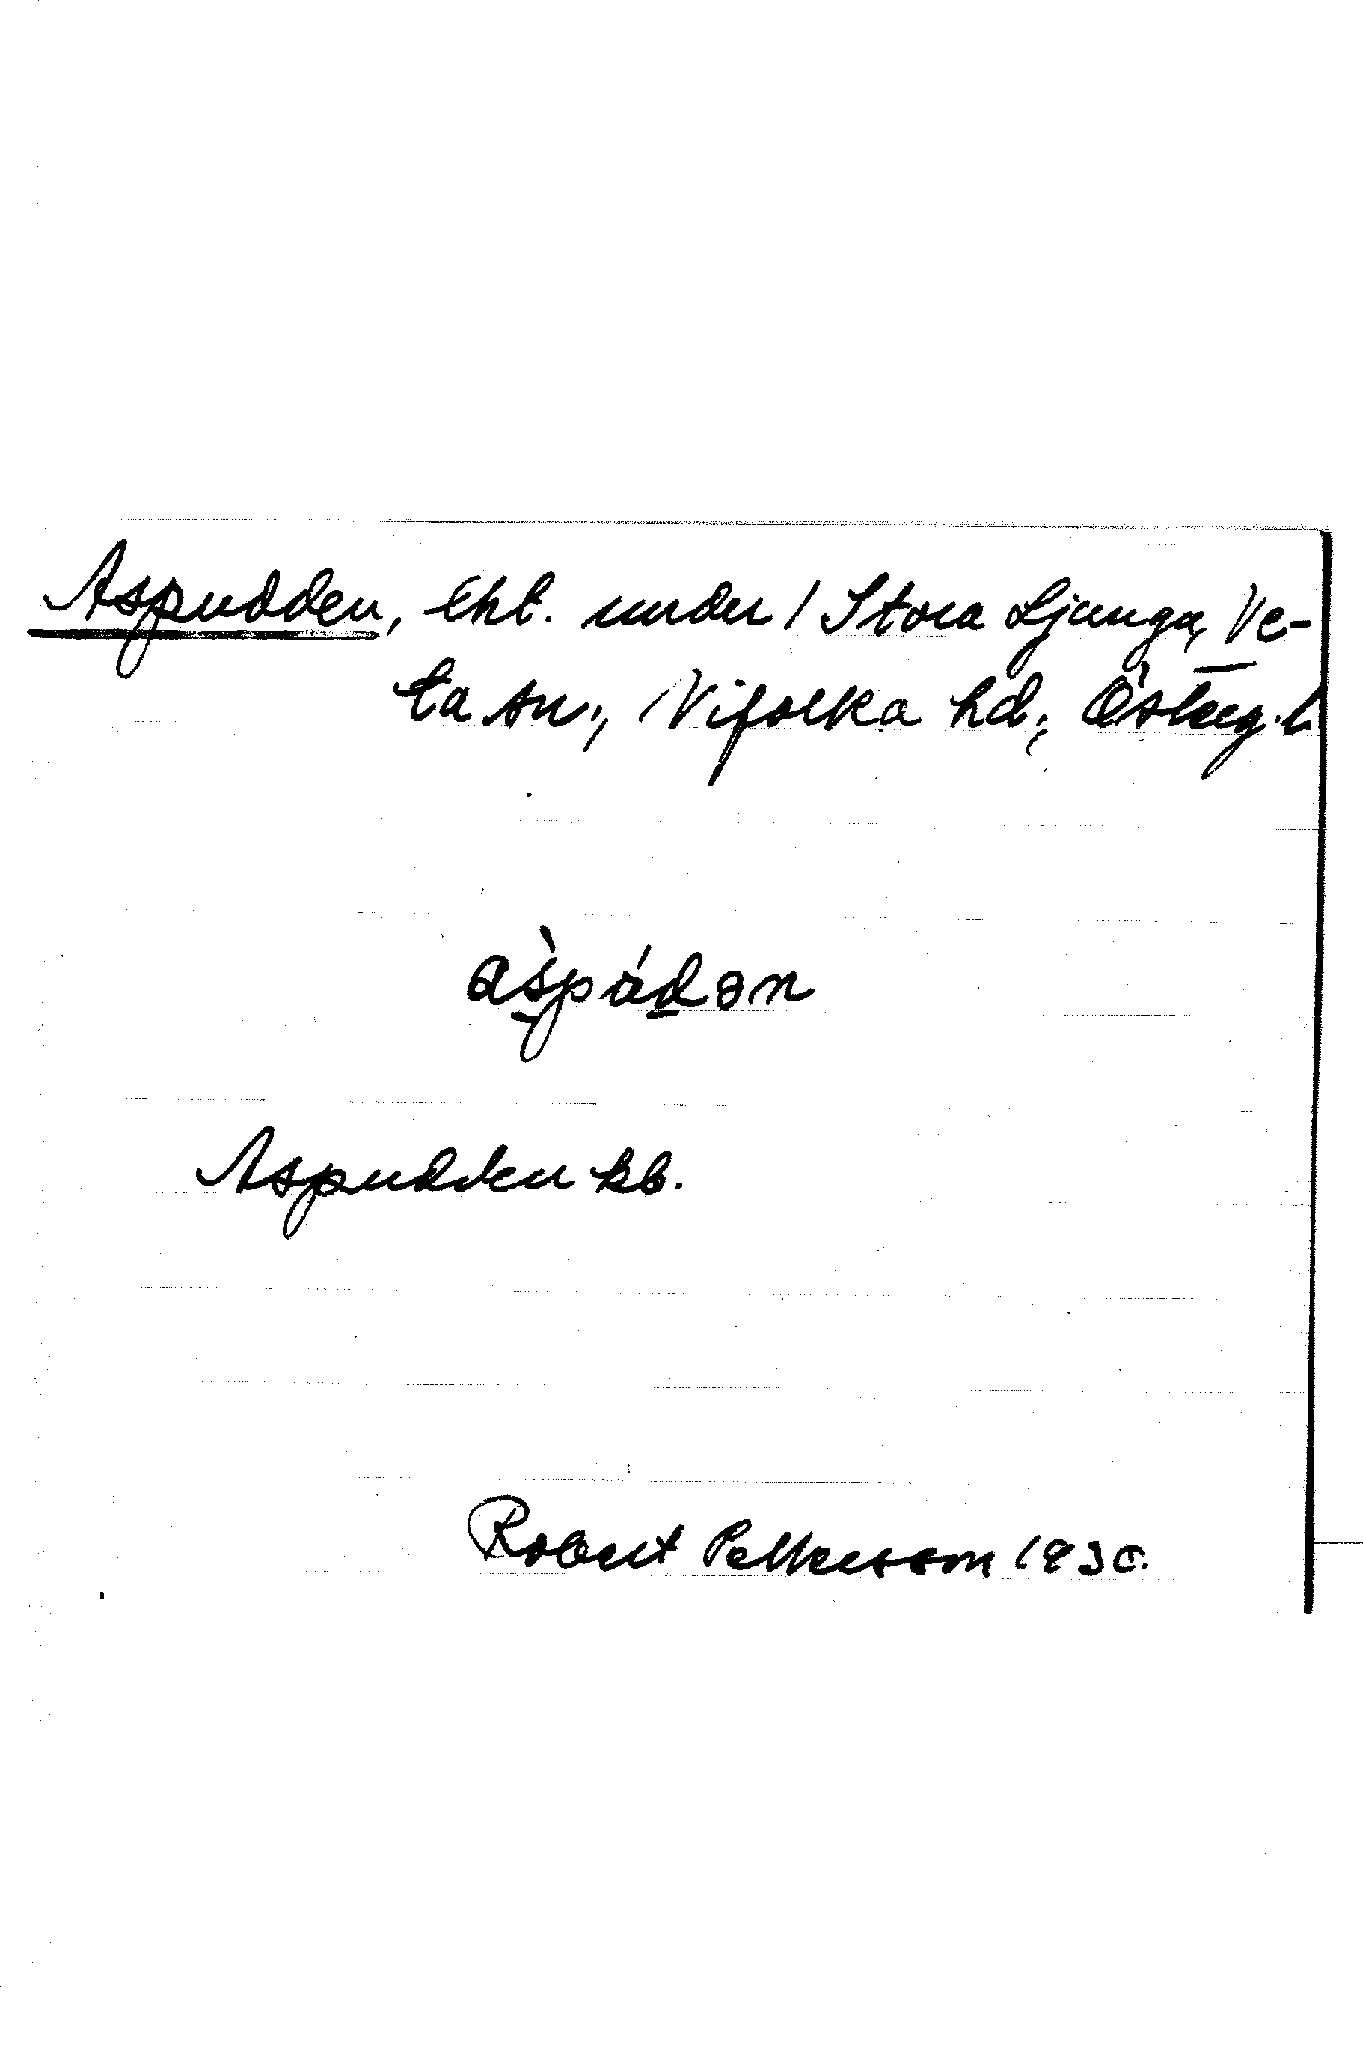 Aspudden, lht. under 1 Stora Ljunga, Ve-
ta sn., Vifolka hd., Österg. l.
a̖spúdən
Aspudden kb.
Robert Pettersson 1930.